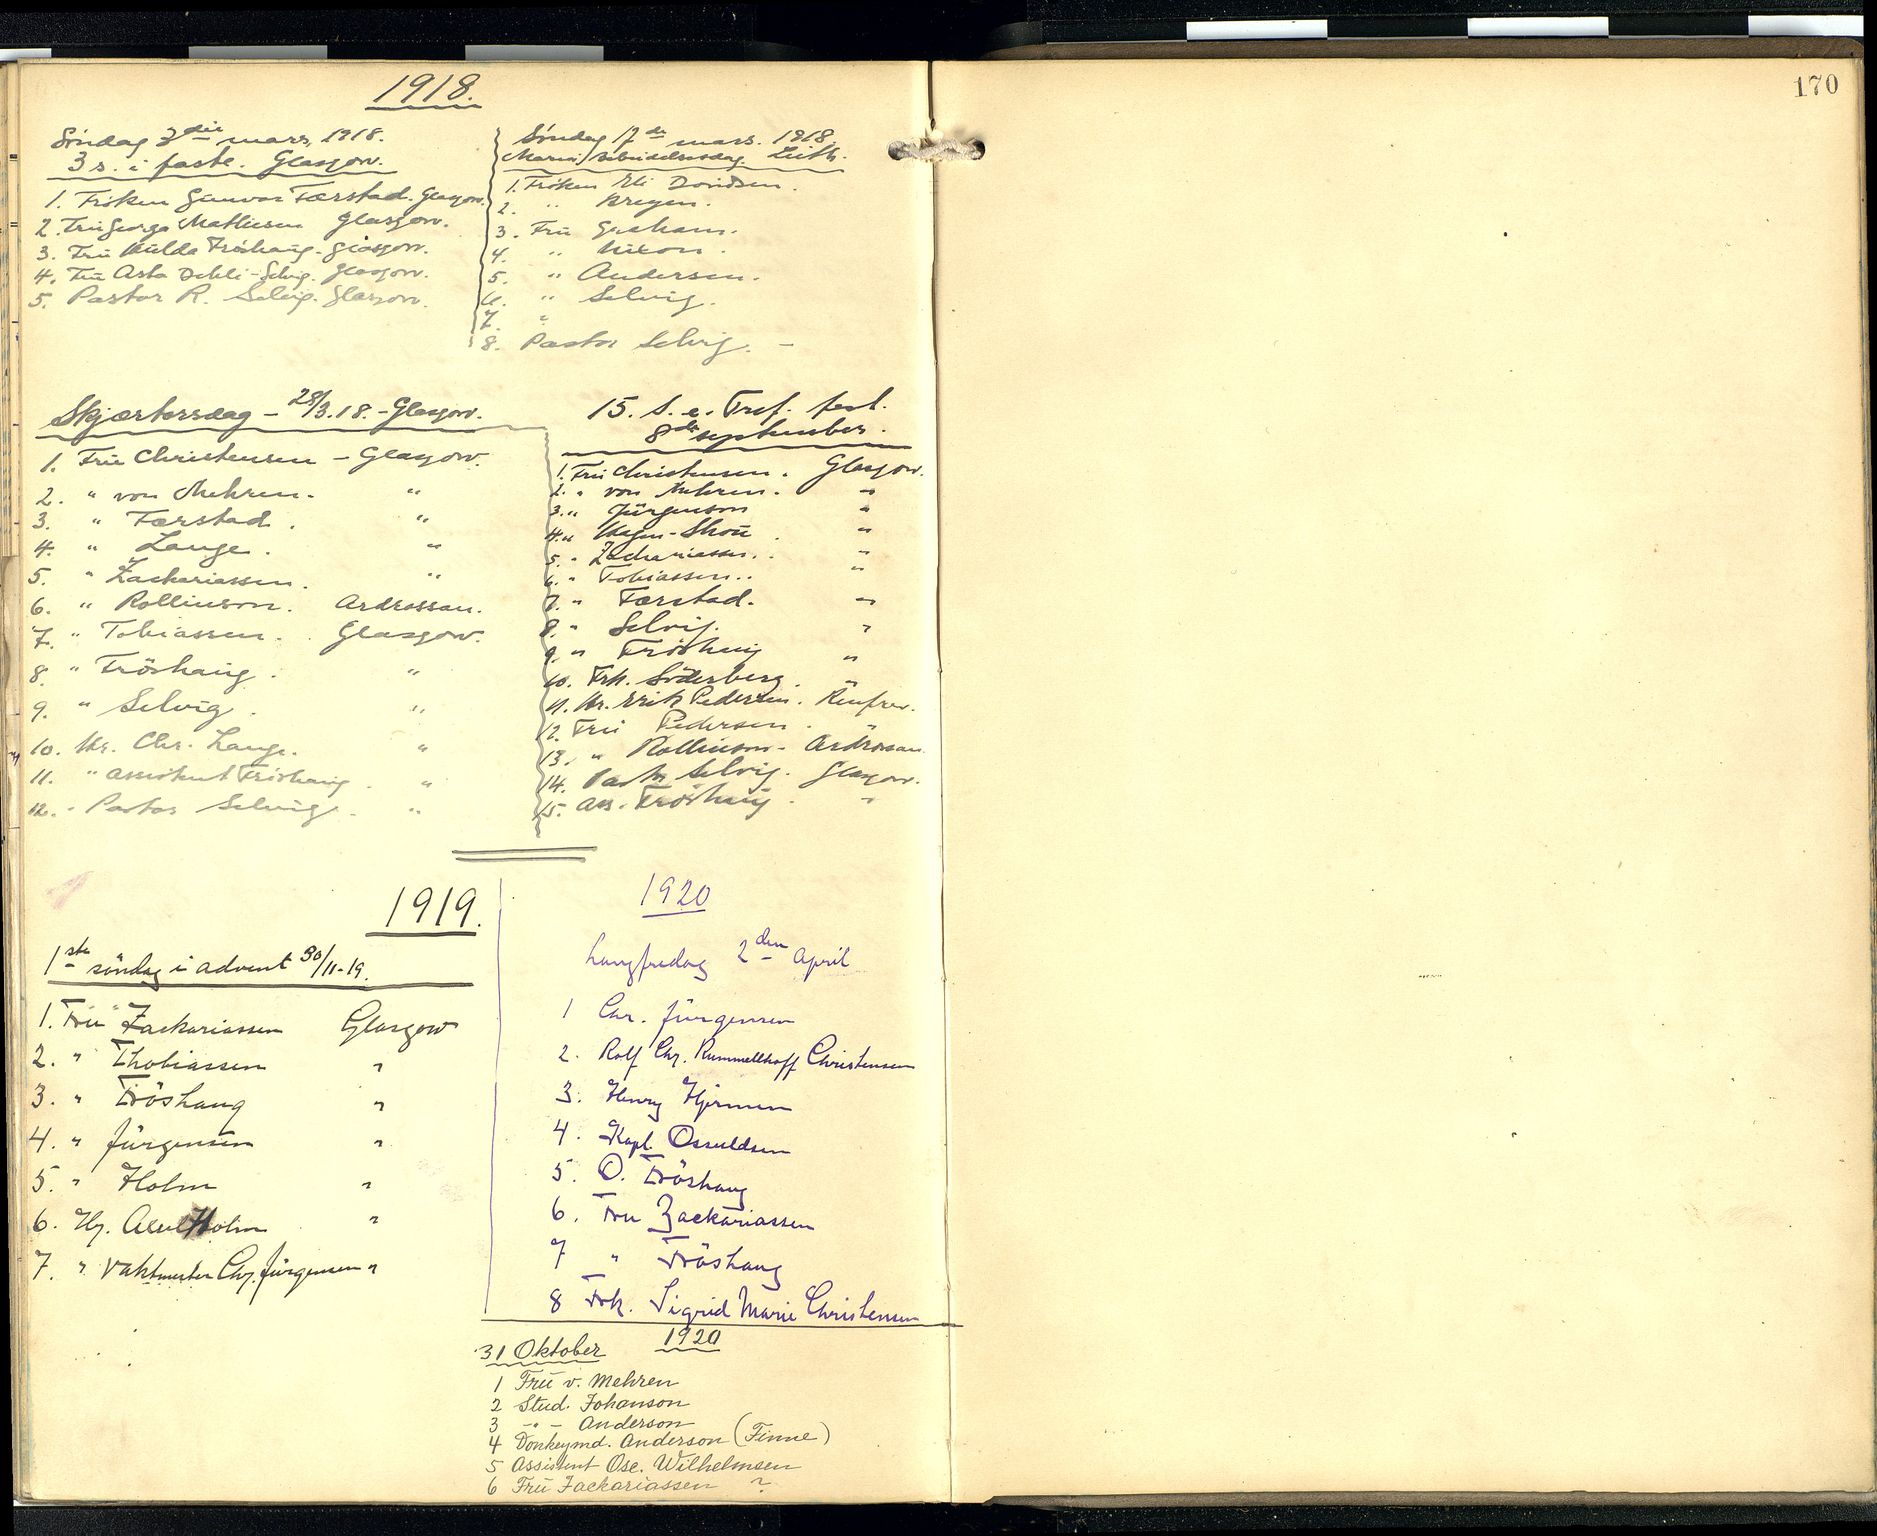 170
1918.
Söndag 3die mars, 1918.
3 s. i faste. Glasgow.
1. Fröken Gunvor Færstad. Glasgow.
2. Fru Georga Mathiesen Glasgow.
3. Fru Hulda Fröshaug. Glasgow.
4. Frü Asta Dehli-Selvig. Glasgow.
5. Pastor R. Selvig. Glasgow.
Söndag 17de mars. 1918
Mariæ Leith.
1. Fröken Eli Davidsen.
2. " Breyen.
3. Frü
4. " Nixon.
5. " Andersen.
6. " Selvig.
7. "
8. Pastor Selvig. -
Skjærtorsdag - 28/3.18. - Glasgow.
1. Frü Christensen - Glasgow.
2. " von Mehren. "
3. " Færstad. "
4. " Lange. "
5. " Zackariassen. "
6. " Rollinson. Ardrossan.
7. " Tobiassen. Glasgow.
8. " Fröshaug. "
9. " Selvig. "
10. Hr. Chr. Lange. "
11. " assistent Fröshaug. "
12. " Pastor Selvig. "
15. s. e. Tref. fest.
8de september.
1. Frü Christensen. Glasgow.
2. " von Mehren. "
3. " Jürgenson "
4. " "
5. " Zachariassen. "
6. " Tobiassen. "
7. " Færstad. "
8. " Selvig. "
9. " Fröshaug "
10. Frk. Söderberg.
11. Hr. Erik Pedersen. Renfrew.
12. Frü Pedersen. "
13. " Rollinson - Ardrossan
14. Pastor Selvig. Glasgow.
15. Ass. Fröshaug. "
1919.
1ste söndag i advent 30/11-19.
1. Frü Zackariassen Glasgow
2. " Thobiassen "
3. " Fröshaug "
4. " Jürgensen "
5. " Holm "
6. Hr. Axel Holm "
7. " Vaktmester Chr. Jürgensen "
1920
Langfredag 2den April
1 Chr. Jürgensen
2. Rolf Chr. Rummelhoff Christensen
3. Henry
4. Kapt. Osvuldsen
5. O. Fröshaug
6. Fru Zackariassen
7 " Fröshaug
8 Frk. Sigrid Marie Christensen
31 Oktober 1920
1 Frü v. Mehren
2 Stud. Johanson
3 -"- Anderson
4 Donkeymd. Anderson (Finne)
5 Assistent Osc. Wilhelmsen
6 Frü Zackariassen